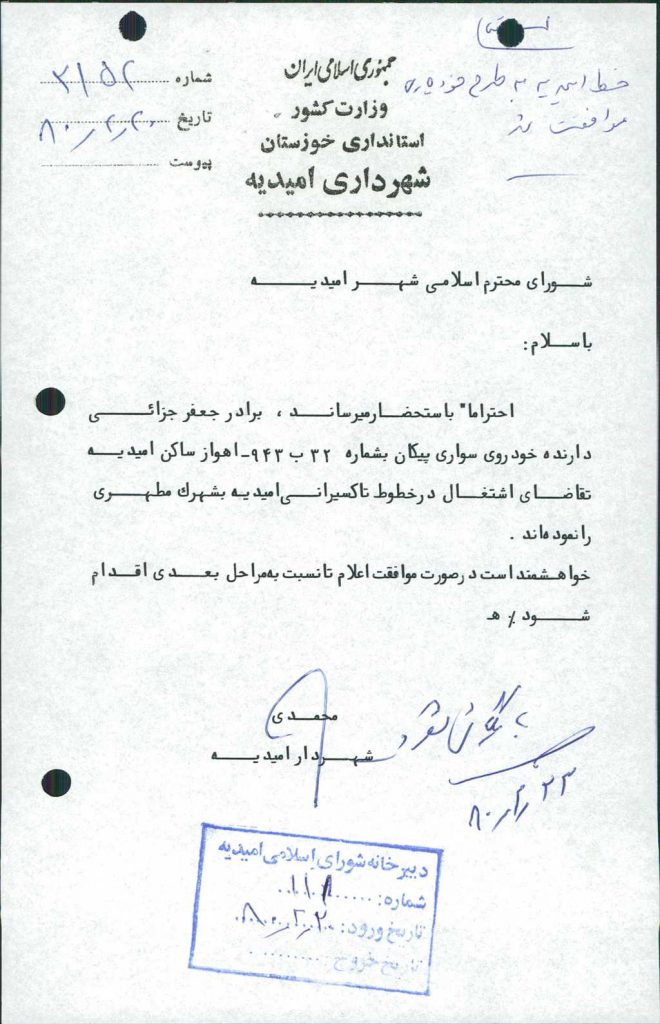 جمهوری اسلامی ایران
وزارت کشور
استانداری خوزستان
شهرداری امیدیه
شماره ۳۱۵۲
تاریخ ۸۰٫۲٫۲۰
پیوست
موافقت شد
شورای محترم اسلامی شهر امیدیه
باسلام:
احتراما" باستحضار میرساند ، برادر جعفر جزائی
دارنده خودروی سواری پیکان بشماره ۳۲ ب ۹۴۳-اهواز ساکن امیدیه
تقاضای اشتغال درخطوط تاکسیرانی امیدیه بشهرك مطهری
را نموده‌اند .
خواهشمند است درصورت موافقت اعلام تا نسبت به‌مراحل بعدی اقدام
شود ٪ هـ
محمدی
شهردار امیدیه
بایگانی شود
۲۳
دبیرخانه شورای اسلامی امیدیه
شماره: ۱۱۸
تاریخ ورود: ۸۰٫۲٫۲۰
تاریخ خروج